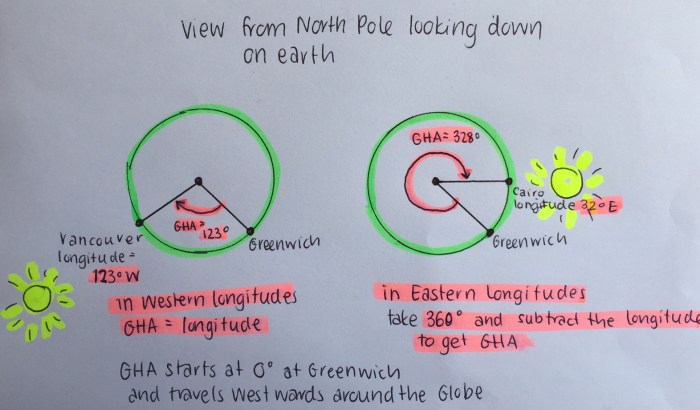 View from North Pole looking down
on earth
GHA=
123°
Greenwich
Vancouver
longitude =
123°W
in Western longitudes
GHA = longitude
GHA = 328°
Cairo
longitude 32°E
Greenwich
in Eastern Longitudes
take 360° and subtract the longitude
to get GHA
GHA starts at 0° at Greenwich
and travels Westwards around the Globe